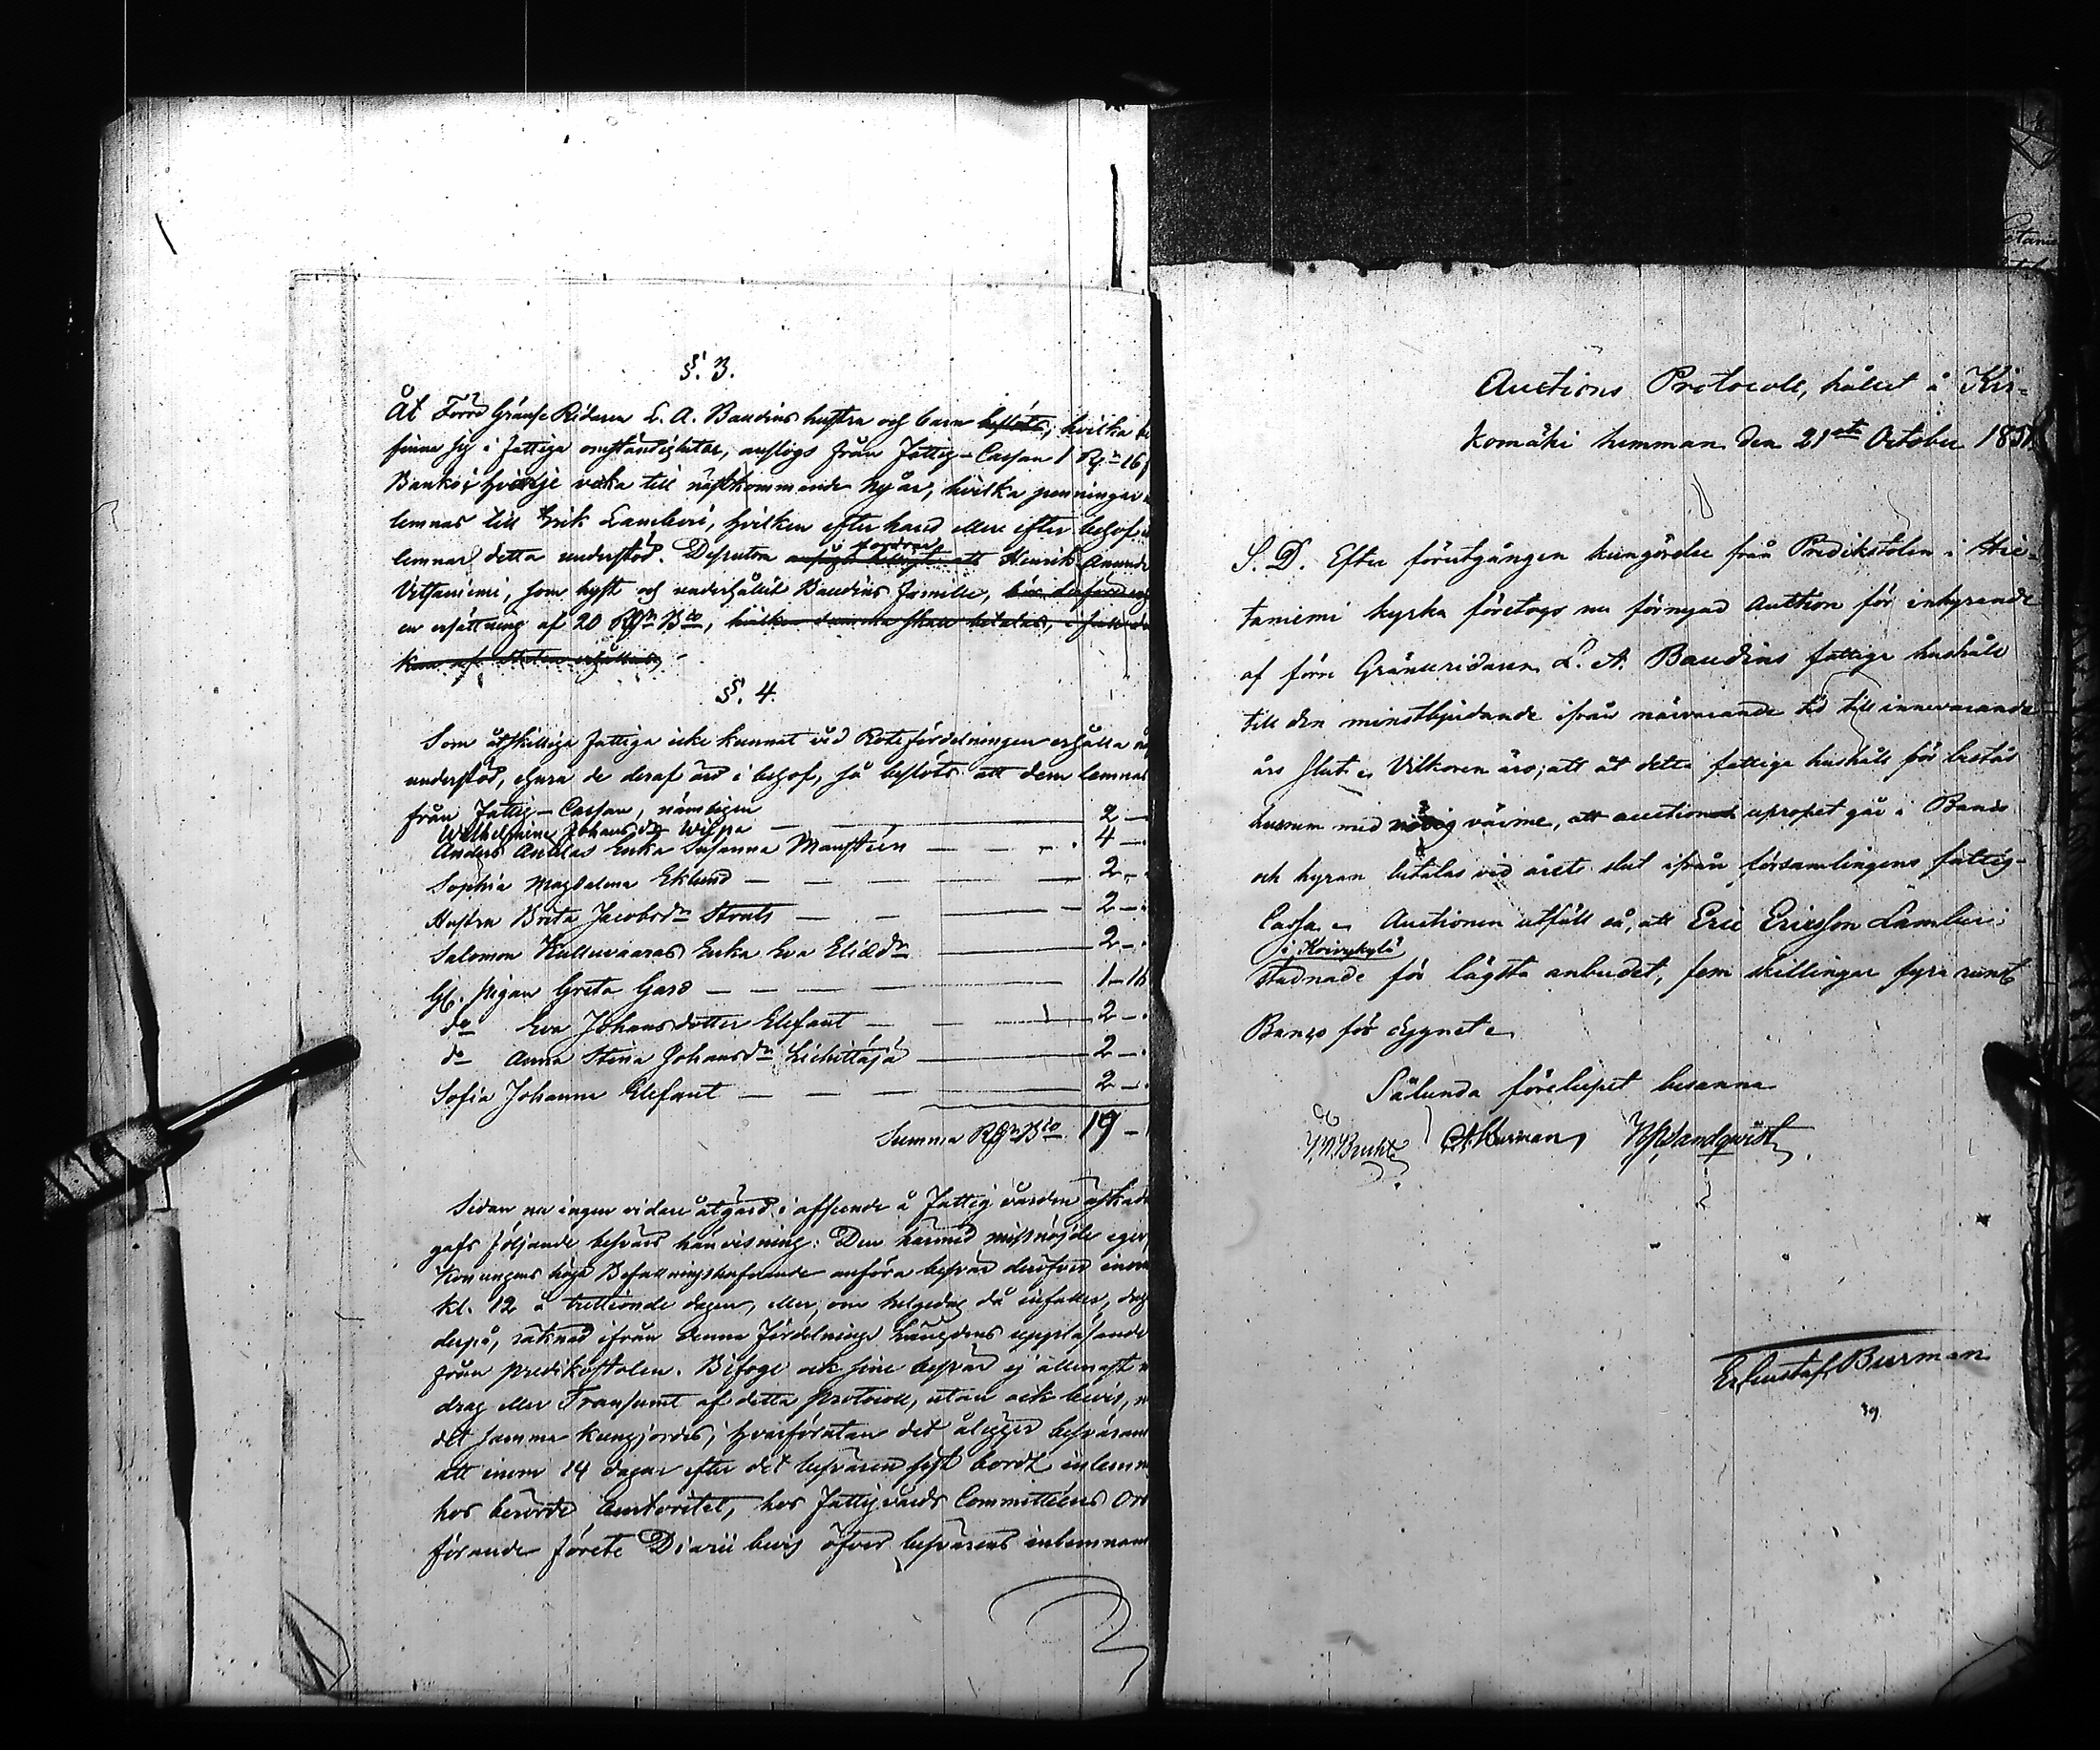 §. 3.
Åt Förre Gränse Ridaren L. A. Baudins hustra och barn besluts, hvilka be
finna sig i fattiga omständigheter, anslogs från Fattig-Cassan 1 Rd 16
Banko i hvarje vecka till nästkommande nyår, hvilka penningar
lemnas till Erik Lamberi, hvilken efter hand eller efter behof
lemnar detta understöd. Dessutom fordrar Henrik Amunds
Vitsaniemi, som hyst och underhållit Baudins familie,
en ersättning af 20 Rdr Bco, hvilken summa skall betalas, i fall de
kan af Staten erhållas
§. 4.
Som åtskilliga fattiga icke kunnat vid Rotefördelningen erhålla nå
understöd, ehuru de deraf äro i behof, så beslöts att dem lemnas
från Fattig-Cassan, nämligen
Wilhelmina Johansdr Wilpa — 2 —
Anders Anttilas Enka Susanna Manstén — 4 —
Sophia Magdalena Eklund — 2 —
Hustru Brita Jacobsdr Strals — 2 —
Salomon Kulluvaaras Enka Eva Eliædr — 2 —
Gl. Pigan Greta Gard — 1 — 16
do Eva Johansdotter Elefant — 2 —
do Anna Stina Johansdr — 2 —
Sofia Johanna Elefant — 2 —
Summa Rdr Bco 19 —
Sedan nu ingen vidare åtgärd i afseende å Fattig vården äskade
gafs följande besvärs hänvisning: Den härmed missnöjde eger
Konungens höga Befallningshafvande anföra besvär deröfver inom
kl. 12 å trettionde dagen, eller, om helgedag då infaller, dag
derpå, räknad ifrån denna fördelnings längdens uppläsande
från predikostolen. Bifoge ock sine besvär ej allenast
drag eller Transumt af detta protocoll, utan ock bevis,
det samma kungjordes; hvarförutan det åligger besvärand
att inom 14 dagar efter det besvären sist bordt inlemn
hos berörde Auctoritet, hos Fattigvårds Committéens Ord
förande förete Diarii bevis öfver besvärens inlemnand
Auctions Protocoll, hållet å Kir-
komäki hemman den 21sta October 185
S. D. Efter förutgången kungörelse från Predikstolen i Hie-
taniemi kyrka företogs nu förnyad Auction för inhyrande
af förre Gränseridaren L. A. Baudins fattiga hushåll
till den minstbjudande ifrån närvarande tid till innevarande
års slut. Vilkoren äro; att åt detta fattiga hushåll bör bestås
husrum med nödig värme, att auctions upropet går i Banco
och hyran betalas vid årets slut ifrån församlingens fattig-
Cassa. Auctionen utföll så, att Eric Ericsson Lamberi
i Koivukylä
stadnade för lägsta anbudet, fem skillingar fyra runst
Banco för dygnet.
Sålunda förelupet besanna
Burman Sandqvist
Er. Gustaf Burman